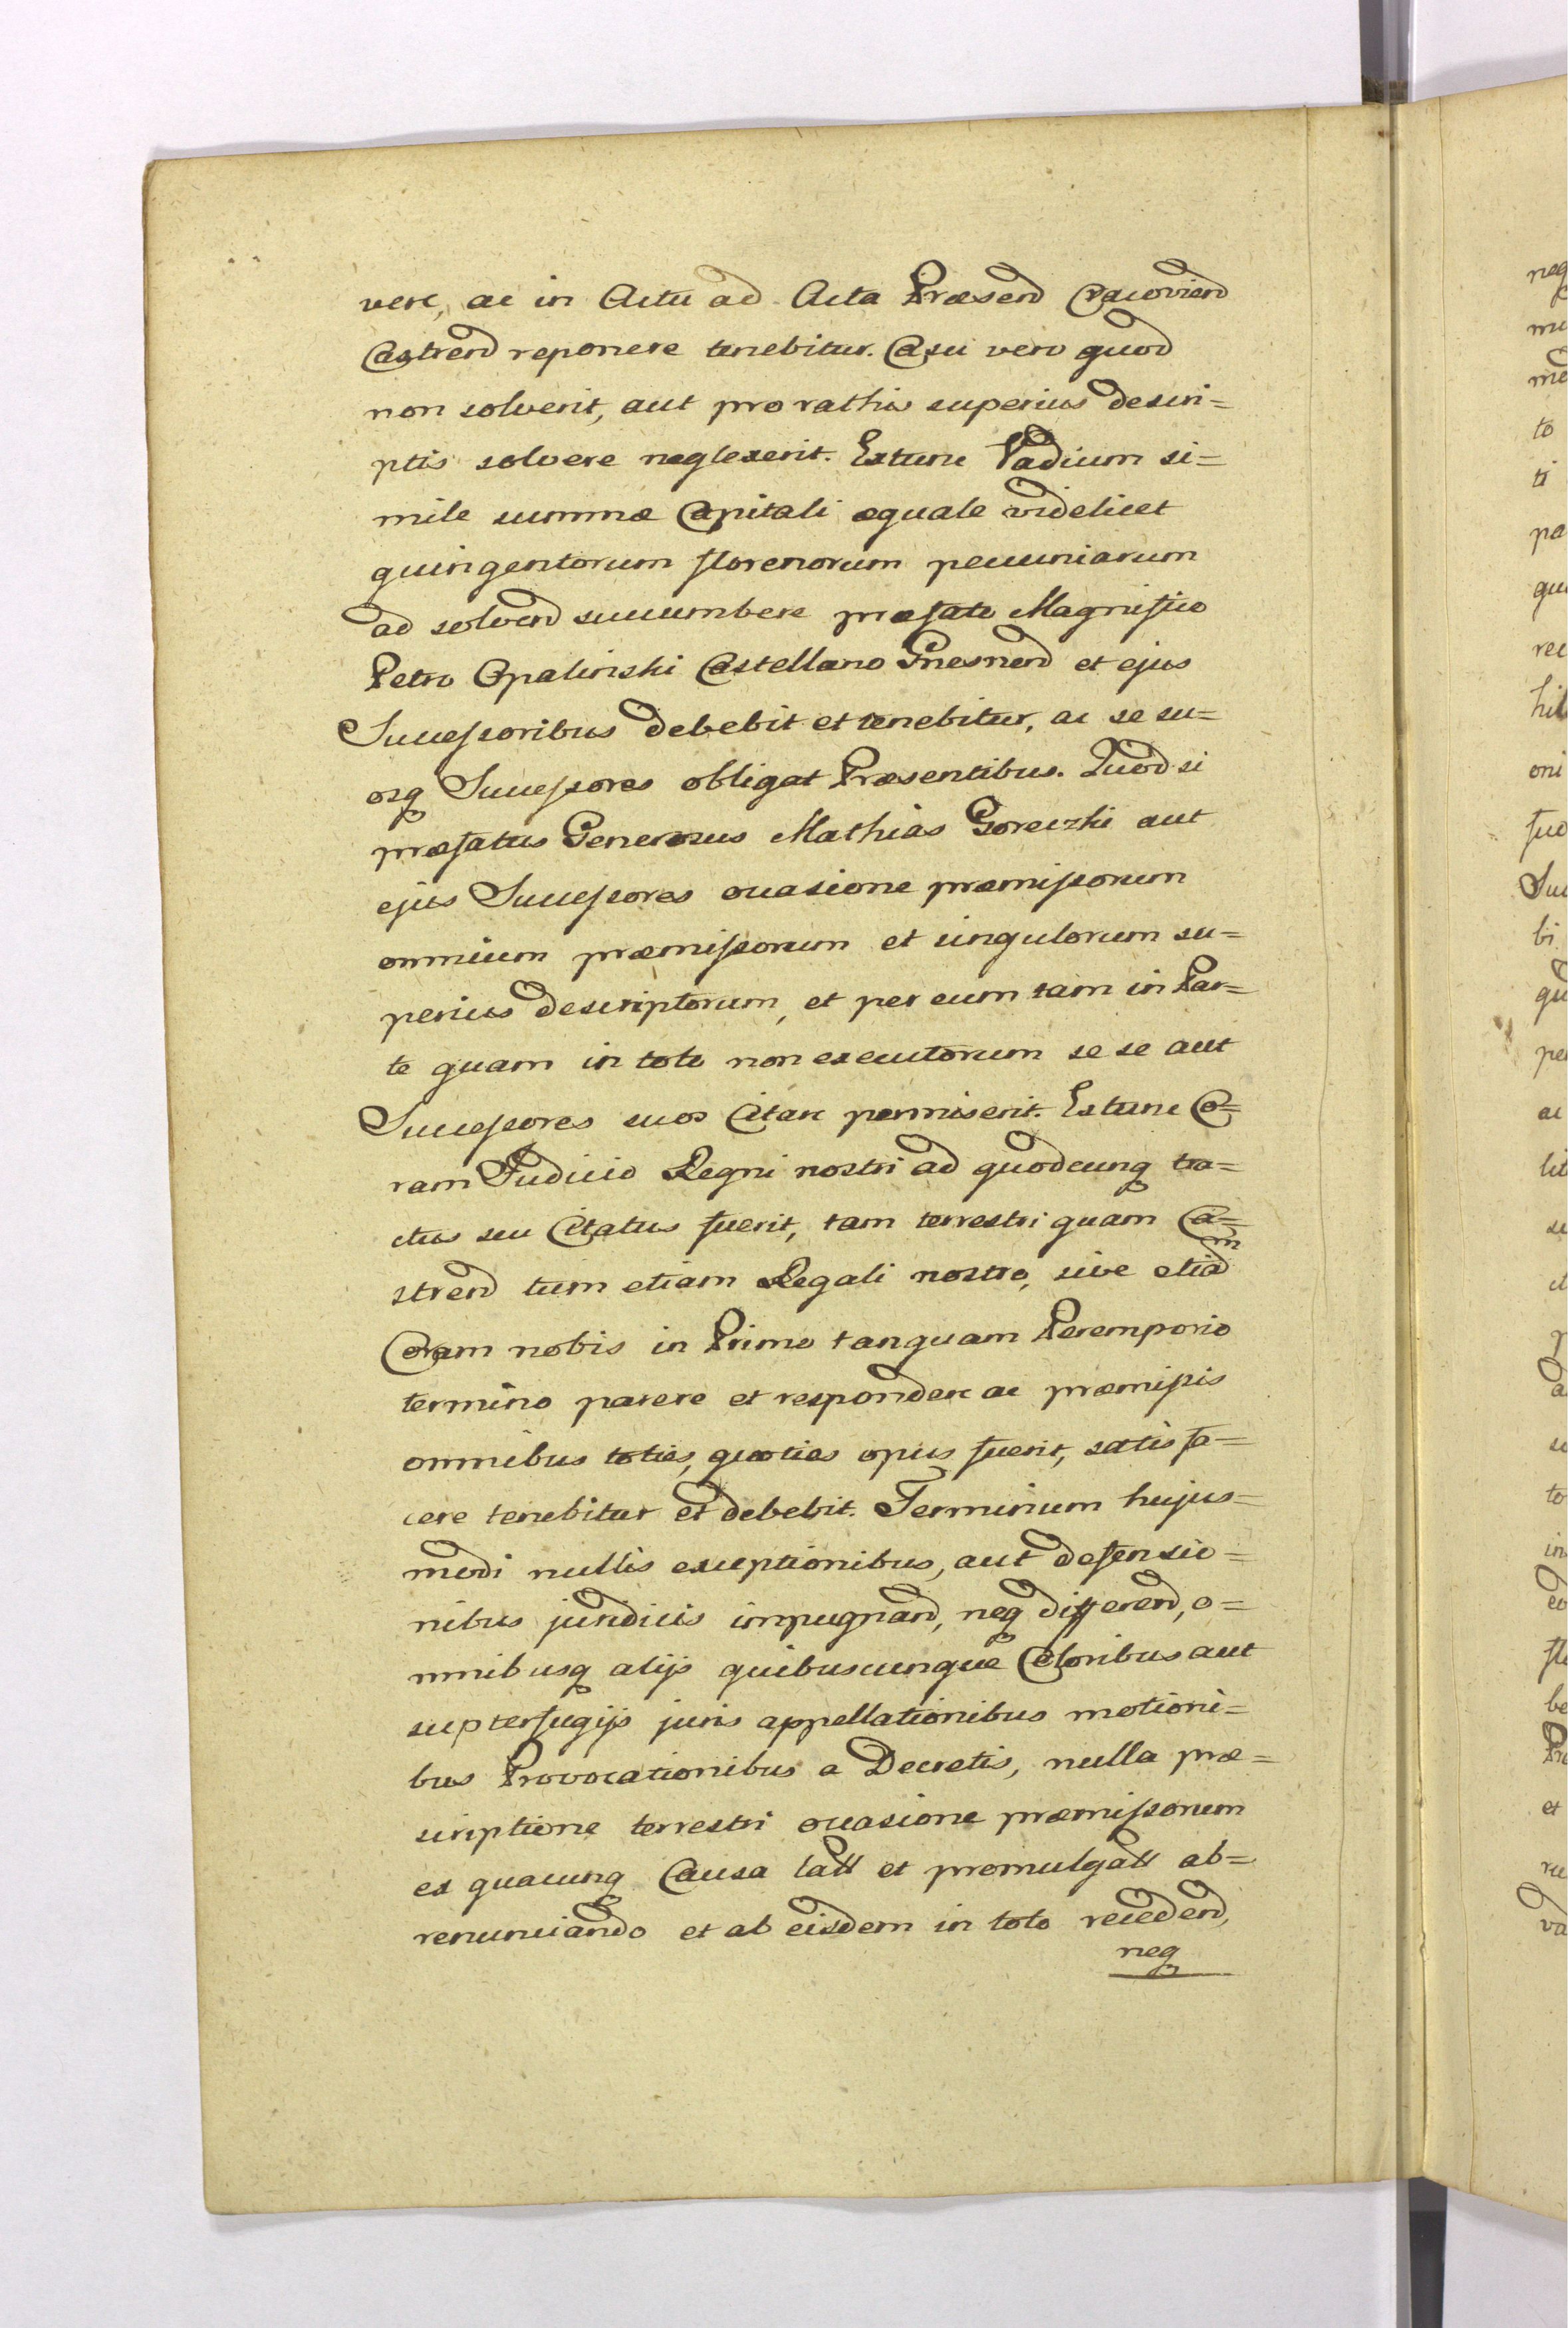 vere, ac in Actu ad Acta Præsend Cracoviend
Castrend reponere tenebitur. Casu vero quod
non solverit, aut pro rathis superius descri=
ptis solvere neglexerit. Extunc Vadium si=
mile summæ Capitali æquale videlicet
quingentorum florenorum pecuniarum
ad solvend succumbere præfato Magnifico
Petro Opalinski Castellano Gnesnend et ejus
Sucessoribus debebit et tenebitur, ac se su=
osq Sucessores obligat Præsentibus. Quod si
præfatus Generosus Mathias Goreczki aut
ejus Sucessores occasione præmissorum
omnium præmissorum et singulorum su=
perius descriptorum, et per eum tam in Par=
te quam in toto non executorum se se aut
Sucessores suos Citare permiserit. Extunc Co=
ram Judicio Regni nostri ad quodcunq tra=
ctus seu Citatus fuerit, tam terrestri quam Ca=
strend tum etiam Regali nostro, sive etiam
Coram nobis in Primo tanquam Peremporio
termino parere et respondere ac præmissis
omnibus toties, quoties opus fuerit, satisfa=
cere tenebitur et debebit. Terminum hujus=
modi nullis exceptionibus, aut defensio=
nibus juridicis impugnand, neq differend, o=
mnibusq alijs quibuscunque Coloribus aut
supterfugijs juris appellationibus motioni=
bus Provocationibus a Decretis, nulla præ=
scriptione terrestri occasione præmissorum
ex quacunq Causa latt et promulgatt ab=
renunciando et ab eisdem in toto recedend,
neq
neg
to
ti
pa
rec
oni
Suc
bi
qu
pe
ac
lit
to
in
be
et